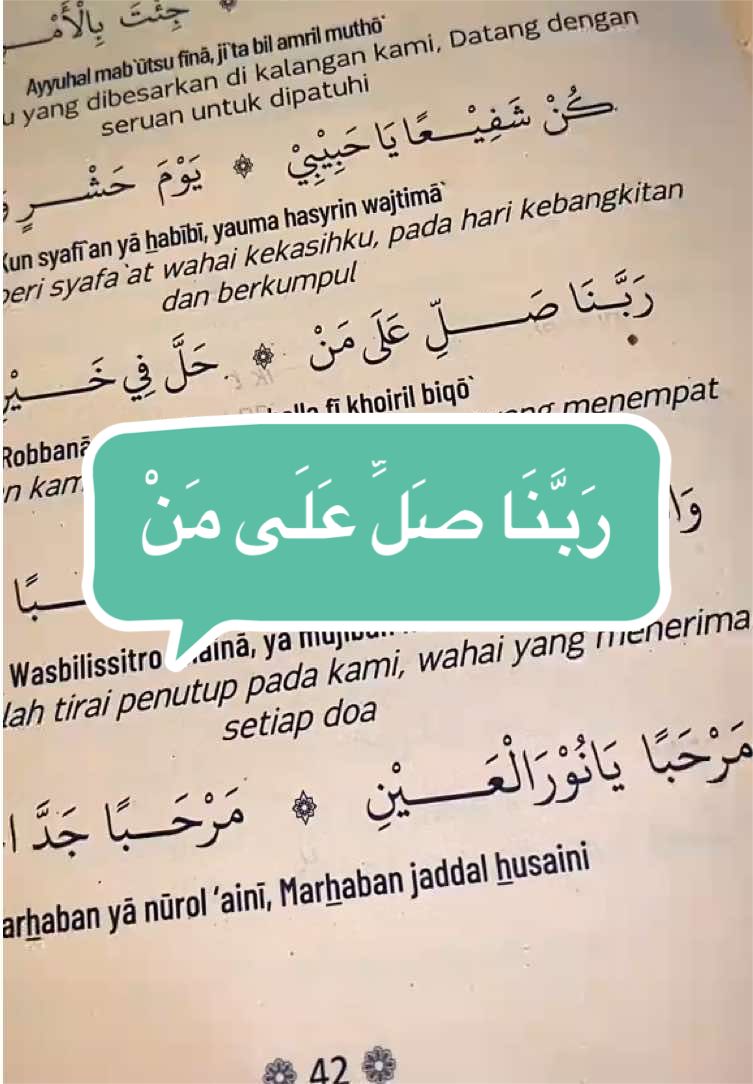 جِئْتَ بِالْأَمْـ
Ayyuhal mab`ūtsu fīnā, ji`ta bil amril muthō`
u yang dibesarkan di kalangan kami, Datang dengan
seruan untuk dipatuhi
كُنْ شَفِيْـــعًا يَا حَبِيْبِيْ ۞ يَوْمَ حَشْـــرٍ
Kun syafī`an yā habībī, yauma hasyrin wajtimā`
beri syafa`at wahai kekasihku, pada hari kebangkitan
dan berkumpul
رَبَّـنَا صَـــلِّ عَلَى مَنْ ۞ حَلَّ فِي خَـــيْرِ
Robbanā halla fī khoiril biqō`
n kam yang menempat
رَبَّنَا صَلِّ عَلَى مَنْ
Wasbilissitro `alainā, yā mujīban
lah tirai penutup pada kami, wahai yang menerima
setiap doa
مَرْحَبًا يَانُوْرَالْعَـــيْنِ ۞ مَرْحَـــبًا جَدَّ ا
arhaban yā nūrol ‘ainī, Marhaban jaddal husaini
42